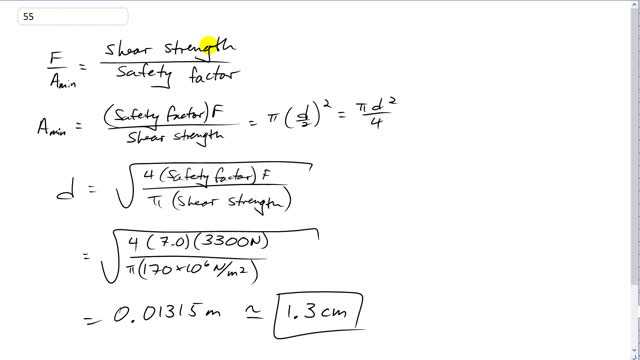 55
F/A_min = Shear strength / Safety factor
A_min = (Safety factor) F / Shear strength = π (d/2)² = πd²/4
d = √(4 (Safety factor) F / π (Shear strength))
= √(4 (7.0) (3300N) / π (170×10⁶ N/m²))
= 0.01315 m ≃ 1.3 cm